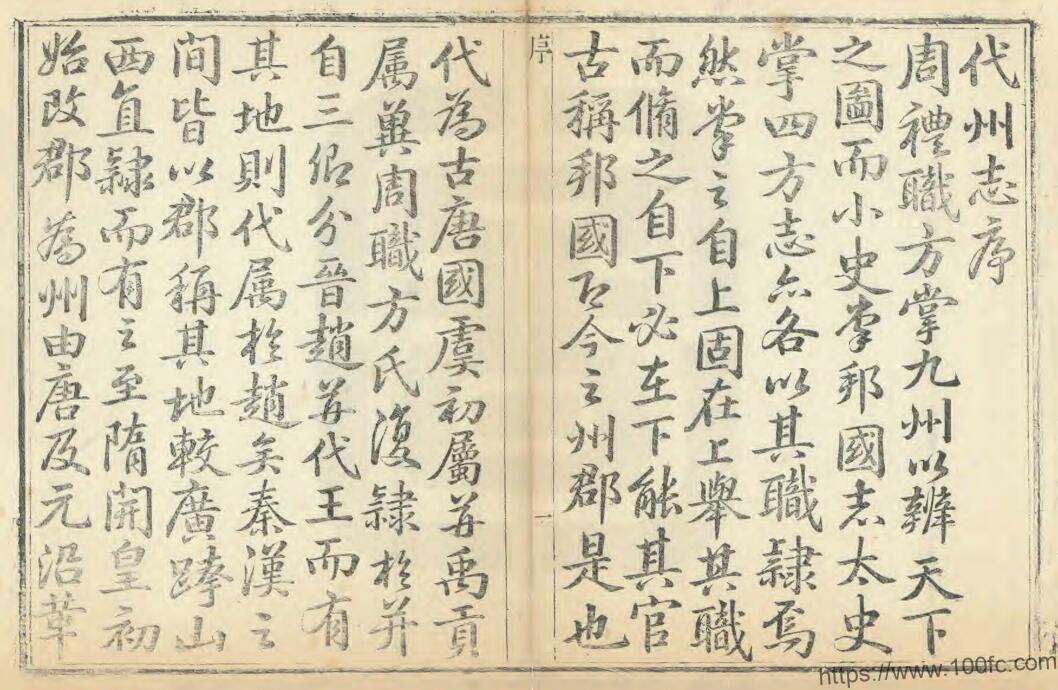 代州志序
周禮職方掌九州以辨天下
之圖而小史掌邦國志太史
掌四方志亦各以其職隷焉
然掌之自上固在上舉其職
而脩之自下必在下能其官
古稱邦國乃今之州郡是也
序
一
代為古唐國虞初屬并禹貢
属兾周職方氏復隷於并
自三卿分晉趙并代王而有
其地則代属於趙矣秦漢之
間皆以郡稱其地較廣跨山
西直隷而有之至隋開皇初
始改郡為州由唐及元沿革
https://www.100fc.com